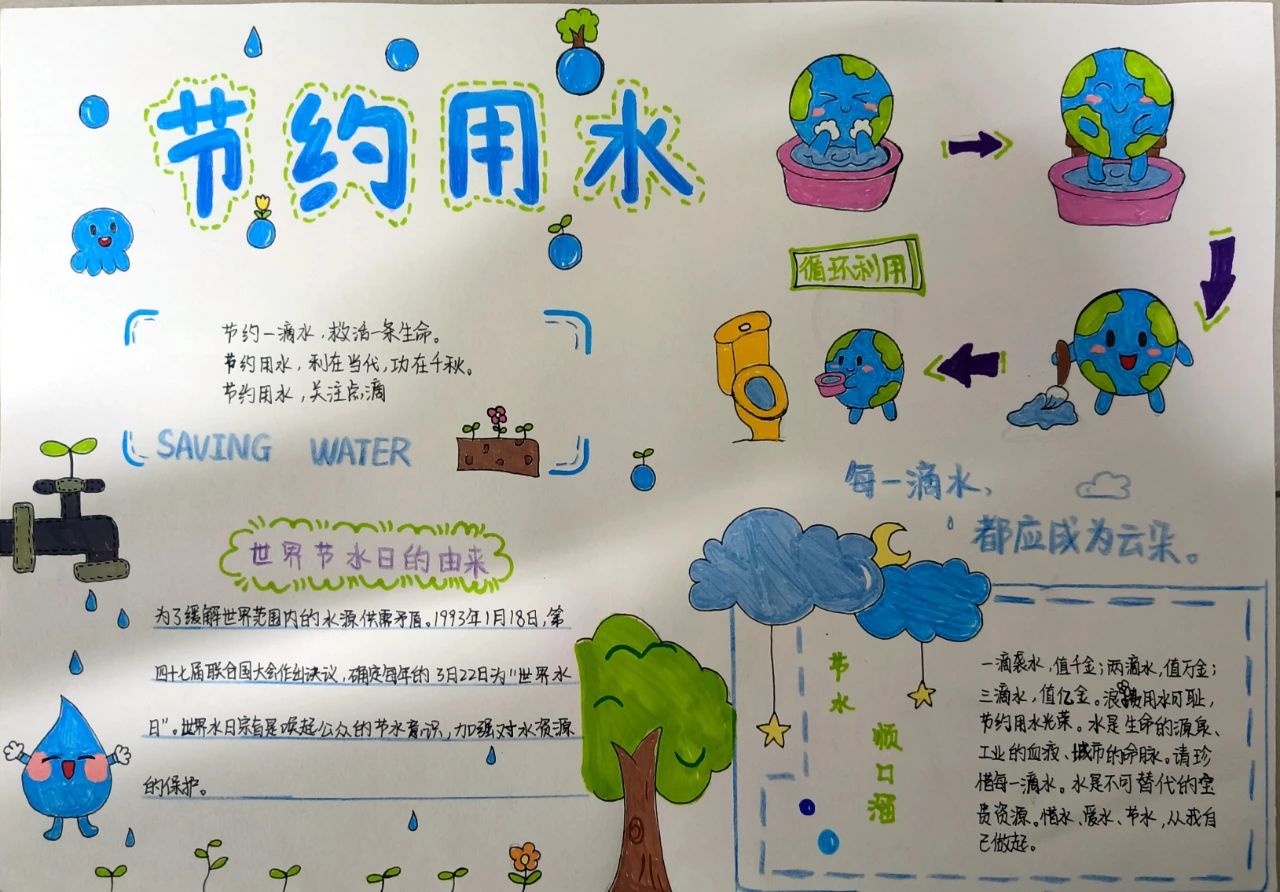 节约用水
循环利用
节约一滴水，救活一条生命。
节约用水，利在当代，功在千秋。
节约用水，关注点滴
SAVING WATER
每一滴水，
都应成为云朵。
世界节水日的由来
为了缓解世界范围内的水源供需矛盾。1993年1月18日，第
四十七届联合国大会作出决议，确定每年的3月22日为“世界水
日”。世界水日宗旨是唤起公众的节水意识，加强对水资源
的保护。
节水
顺口溜
一滴水，值千金；两滴水，值万金；
三滴水，值亿金。浪用水可耻，
节约用水光荣。水是生命的源泉、
工业的血液、城市的命脉。请珍
惜每一滴水。水是不可替代的宝
贵资源。惜水、爱水、节水，从我自
己做起。